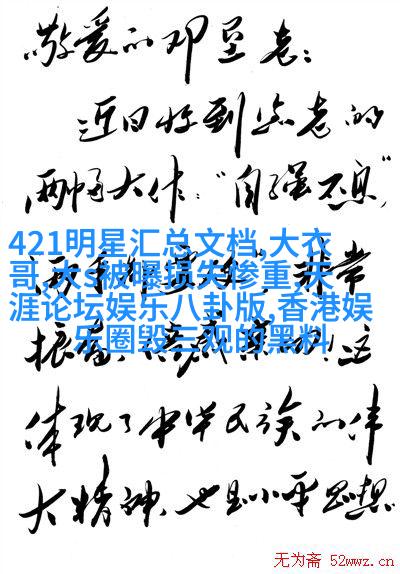 敬爱的邓垦老：
近日收到您老的
两幅大作："自强不息"
421明星汇总文档,大衣
哥,大s被曝损失惨重,天
涯论坛娱乐八卦版,香港娱
乐圈毁三观的黑料
非常
振奋
这
体现了中华民族的伟
大精神，也是小平思想
无为斋 52wwz.cn